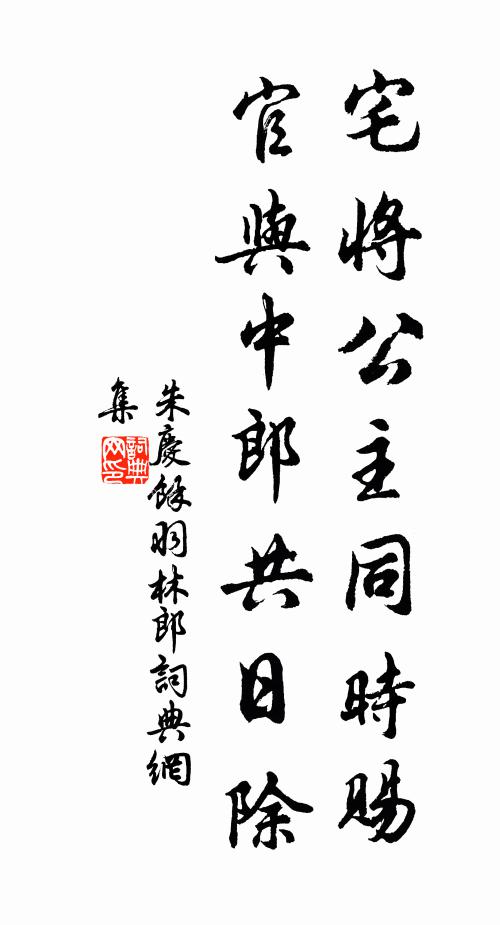 宅將公主同時賜
官與中郎共日除
朱慶餘羽林郎詞典網
集
詞典
网印